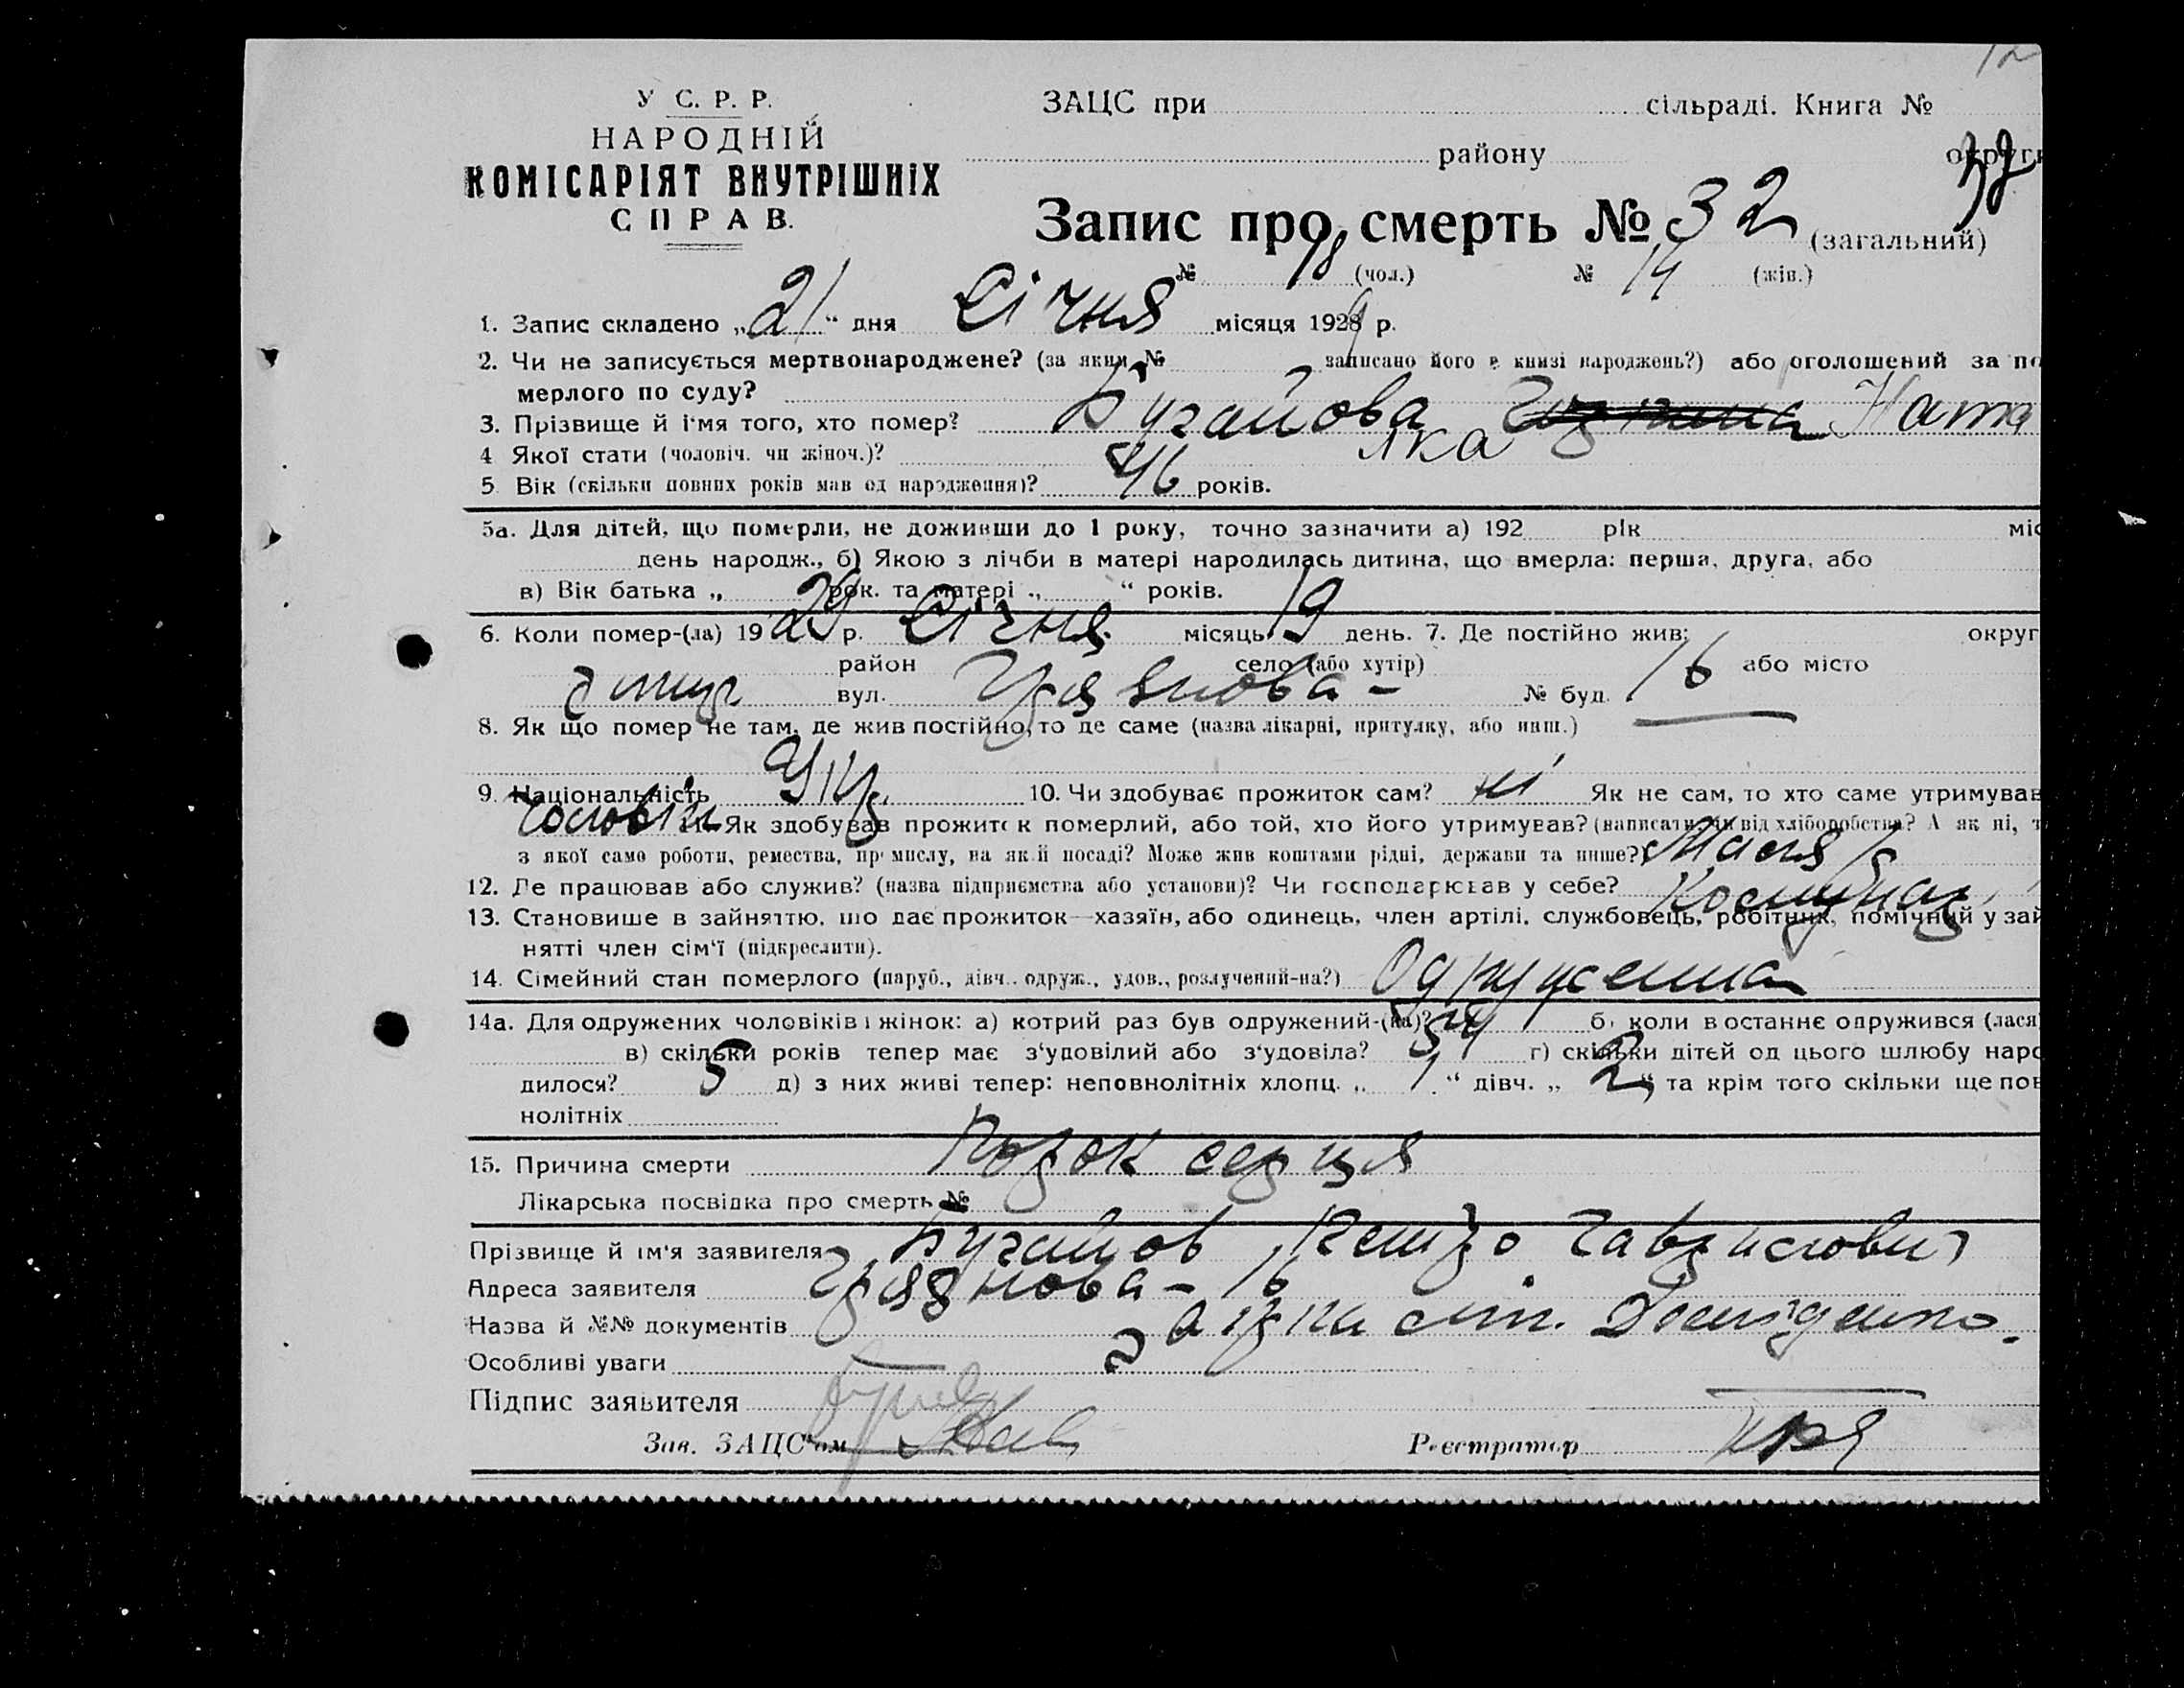 12
У С. Р. Р.
НАРОДНІЙ
КОМІСАРІЯТ ВНУТРІШНІХ
СПРАВ.
ЗАЦС при сільраді. Книга №
району округи
Запис про смерть № 32 (загальний)
№ 18 (чол.) № 14 (жін.)
1. Запис складено „21“ дня Січня місяця 1929 р.
2. Чи не записується мертвонароджене? (за яким № записано його в книзі народжень?) або оголошений за по
мерлого по суду?
3. Прізвище й ім'я того, хто помер? Бугайова Ната
лка
4 Якої стати (чоловіч. чи жіноч.)?
5. Вік (скільки повних років мав од народження)? 46 років.
5а. Для дітей, що померли, не доживши до 1 року, точно зазначити а) 192 рік міс
день народж., б) Якою з лічби в матері народилась дитина, що вмерла: перша, друга, або
в) Вік батька „ рок. та матері „ “ років.
6. Коли помер-(ла) 1929 р. Січня місяць 19 день. 7. Де постійно жив: округ
район село (або хутір) або місто
вул. Грязнова - № буд. 16
8. Як що помер не там, де жив постійно, то де саме (назва лікарні, притулку, або инш.)
9. Національність Укр. 10. Чи здобуває прожиток сам? ні Як не сам, то хто саме утримував
Чоловік 11. Як здобував прожиток померлий, або той, хто його утримував? (написати чи від хліборобства? А як ні, т
з якої само роботи, ремества, промислу, на якій посаді? Може жив коштами рідні, держави та инше?)
12. Де працював або служив? (назва підприємства або установи)? Чи господарював у себе?
13. Становище в зайняттю, що дає прожиток—хазяїн, або одинець, член артілі, службовець, робітник, помічний у зай
нятті член сім'ї (підкреслити).
14. Сімейний стан померлого (паруб., дівч., одруж., удов., розлучений-на?) Одружена
14а. Для одружених чоловіків і жінок: а) котрий раз був одружений-(на)? б) коли в останнє одружився (лася)
в) скільки років тепер має з'удовілий або з'удовіла? 54 г) скільки дітей од цього шлюбу наро
дилося? 5 д) з них живі тепер: неповнолітніх хлопц. „ 1 “ дівч. „ 2 “ та крім того скільки ще пов
нолітніх
15. Причина смерти Порок серця
Лікарська посвідка про смерть №
Прізвище й ім'я заявителя Бугайов Петро Гаврилович
Адреса заявителя Грязнова - 16
Назва й №№ документів
Особливі уваги
Підпис заявителя
Зав. ЗАЦС'ом Реєстратор